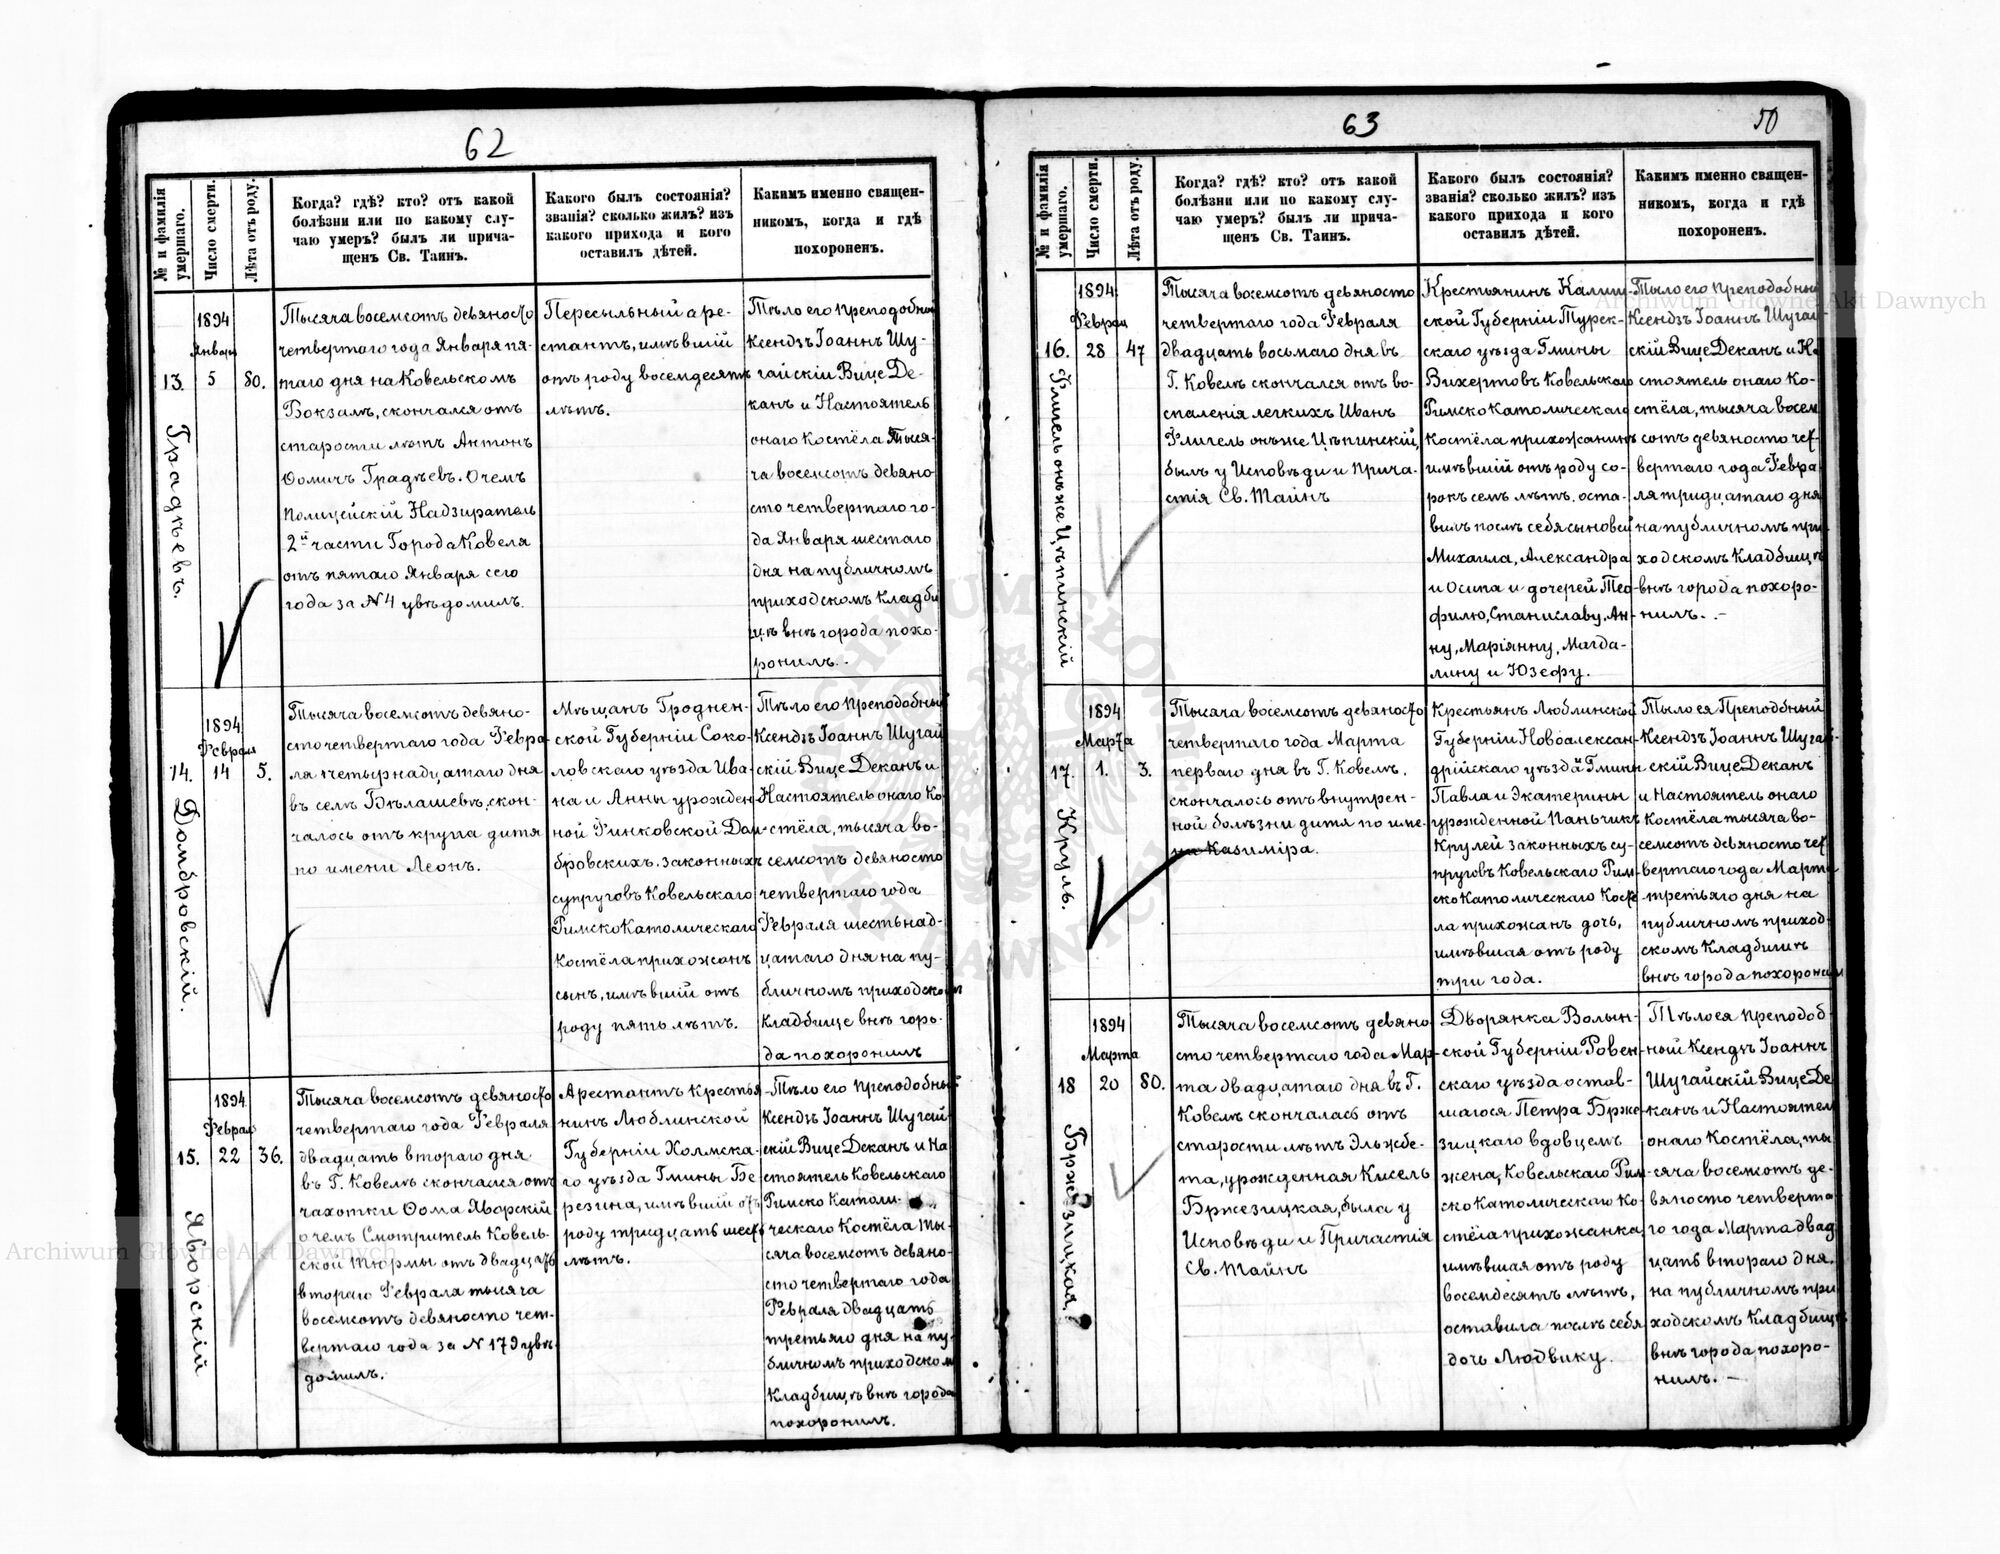 62
№ и фамилія умершаго.
Число смерти.
Лѣта отъ роду.
Когда? гдѣ? кто? отъ какой
болѣзни или по какому слу-
чаю умеръ? былъ ли прича-
щенъ Св. Таинъ.
Какого былъ состоянія?
званія? сколько жилъ? изъ
какого прихода и кого
оставилъ дѣтей.
Какимъ именно священ-
никомъ, когда и гдѣ
похороненъ.
13.
Градѣевъ.
1894
Январ
5
80.
Тысяча восемсотъ девяносто
четвертаго года Января пя-
таго дня на Ковельскомъ
Вокзалѣ, скончался отъ
старости лѣтъ Антонъ
Ѳомичъ Градѣевъ. О чемъ
Полицейскій Надзиратель
2й части Города Ковеля
отъ пятаго Января сего
года за N 4 увѣдомилъ.
Пересыльный аре-
стантъ, имѣвшій
отъ роду восемдесятъ
лѣтъ.
Тѣло его Преподобный
Ксендзъ Іоаннъ Шу-
гайскій Вице Де-
канъ и Настоятель
онаго Костёла Тыся-
ча восемсотъ девяно
сто четвертаго го-
да Января шестаго
дня на публичномъ
приходскомъ Кладби
щѣ внѣ города похо-
ронилъ.-
14.
Домбровскій.
1894
Февраля
14
5.
Тысяча восемсотъ девяно-
сто четвертаго года Февра-
ля четырнадцатаго дня
въ селѣ Бѣлашевѣ, скон-
чалось отъ крупа дитя
по имени Леонъ.
Мѣщанъ Гроднен-
ской Губерніи Соко-
ловскаго уѣзда Ива-
на и Анны урожден
ной Финковской Дом-
бровскихъ. законныхъ
супруговъ Ковельскаго
Римско Католическаго
Костёла прихожанъ
сынъ, имѣвшій отъ
роду пять лѣтъ.
Тѣло его Преподобный
Ксендзъ Іоаннъ Шугай
скій Вице Деканъ и
Настоятель онаго Ко
стёла, тысяча во-
семсотъ девяносто
четвертаго года
Февраля шестьнад-
цатаго дня на пу-
бличномъ приходском
Кладбище внѣ горо-
да похоронилъ
15.
Яворскій
1894
Феврал
22
36.
Тысяча восемсотъ девяносто
четвертаго года Февраля
двадцать втораго дня
въ Г. Ковелѣ скончался отъ
чахотки Ѳома Яворскій
о чемъ Смотритель Ковель-
ской Тюрмы отъ двадцать
втораго Февраля тысяча
восемсотъ девяносто чет-
вертаго года за N 179 увѣ-
домилъ.
Арестантъ крестья
нинъ Люблинской
Губерніи Холмска-
го уѣзда Гмины Бе
резина, имѣвшій отъ
роду тридцать шесть
лѣтъ.
Тѣло его Преподобный
Ксендзъ Іоаннъ Шугай-
скій Вице Деканъ и На
стоятель Ковельскаго
Римско Католи-
ческаго Костёла Ты-
сяча восемсотъ девяно-
сто четвертаго года
Февраля двадцать
третьяго дня на пу-
бличномъ приходском
Кладбищѣ внѣ города
похоронилъ.
63
50
№ и фамилія умершаго.
Число смерти.
Лѣта отъ роду.
Когда? гдѣ? кто? отъ какой
болѣзни или по какому слу-
чаю умеръ? былъ ли прича-
щенъ Св. Таинъ.
Какого былъ состоянія?
званія? сколько жилъ? изъ
какого прихода и кого
оставилъ дѣтей.
Какимъ именно священ-
никомъ, когда и гдѣ
похороненъ.
16.
Флигель онъже Цѣпинскій
1894
Феврал
28
47
Тысяча восемсотъ девяносто
четвертаго года Февраля
двадцать восьмаго дня въ
Г. Ковелѣ скончался отъ во-
спаленія легкихъ Иванъ
Флигель онъже Цѣпинскій,
былъ у Исповѣди и Прича-
стія Св. Тайнъ
Крестьянинъ Калиш-
ской Губерніи Турек-
скаго уѣзда Гмины
Вихертовъ Ковельскаго
Римско Католическаго
Костёла прихожанинъ
имѣвшій отъ роду со-
рокъ семь лѣтъ. оста-
вилъ послѣ себя сыновей
Михаила, Александра
и Осипа и дочерей Тео-
филю, Станиславу, Ан-
ну, Маріянну, Магда-
лину и Юзефу.
Тѣло его Преподобный
Ксендзъ Іоаннъ Шугай-
скій Вице Деканъ и На
стоятель онаго Ко-
стёла, тысяча восем
сотъ девяносто чет-
вертаго года Февра-
ля тридцатаго дня
на публичномъ при-
ходскомъ Кладбищѣ
внѣ города похоро-
нилъ.-
17.
Круль.
1894
Марта
1.
3.
Тысяча восемсотъ девяносто
четвертаго года Марта
перваго дня въ Г. Ковелѣ.
скончалось отъ внутрен-
ной болѣзни дитя по име-
ни Казиміра.
Крестьянъ Люблинской
Губерніи Новоалексан-
дрійскаго уѣзда Гмины
Павла и Екатерины
урожденной Паньчикъ
Крулей законныхъ су-
пруговъ Ковельскаго Рим-
ско Католическаго Костё
ла прихожанъ дочь,
имѣвшая отъ роду
три года.
Тѣло ея Преподобный
Ксендзъ Іоаннъ Шугай-
скій Вице Деканъ
и Настоятель онаго
Костёла тысяча во-
семсотъ девяносто чет
вертаго года Марта
третьяго дня на
публичномъ приход-
скомъ Кладбищѣ
внѣ города похоронил
18
Бржезицкая
1894
Марта
20
80.
Тысяча восемсотъ девяно
сто четвертаго года Мар-
та двадцатаго дня въ Г.
Ковелѣ скончалась отъ
старости лѣтъ Эльжбе-
та, урожденная Кисель
Бржезицкая, была у
Исповѣди и Причастія
Св. Тайнъ
Дворянка Волын-
ской Губерніи Ровен-
скаго уѣзда остав-
шагося Петра Брже
зицкаго вдовцемъ
жена, Ковельскаго Рим-
ско Католическаго Ко-
стёла прихожанка,
имѣвшая отъ роду
восемдесятъ лѣтъ,
оставила послѣ себя
дочь Людвику.
Тѣло ея Преподоб
ной Ксендзъ Іоаннъ
Шугайскій Вице Де
канъ и Настоятел
онаго Костёла, ты
сяча восемсотъ де-
вяносто четверта-
го года Марта двад
цать втораго дня.
на публичномъ при
ходскомъ Кладбищѣ
внѣ города, похоро-
нилъ.-
Archiwum Główne Akt Dawnych
Archiwum Główne Akt Dawnych
ARCHIWUM GŁÓWNE AKT DAWNYCH